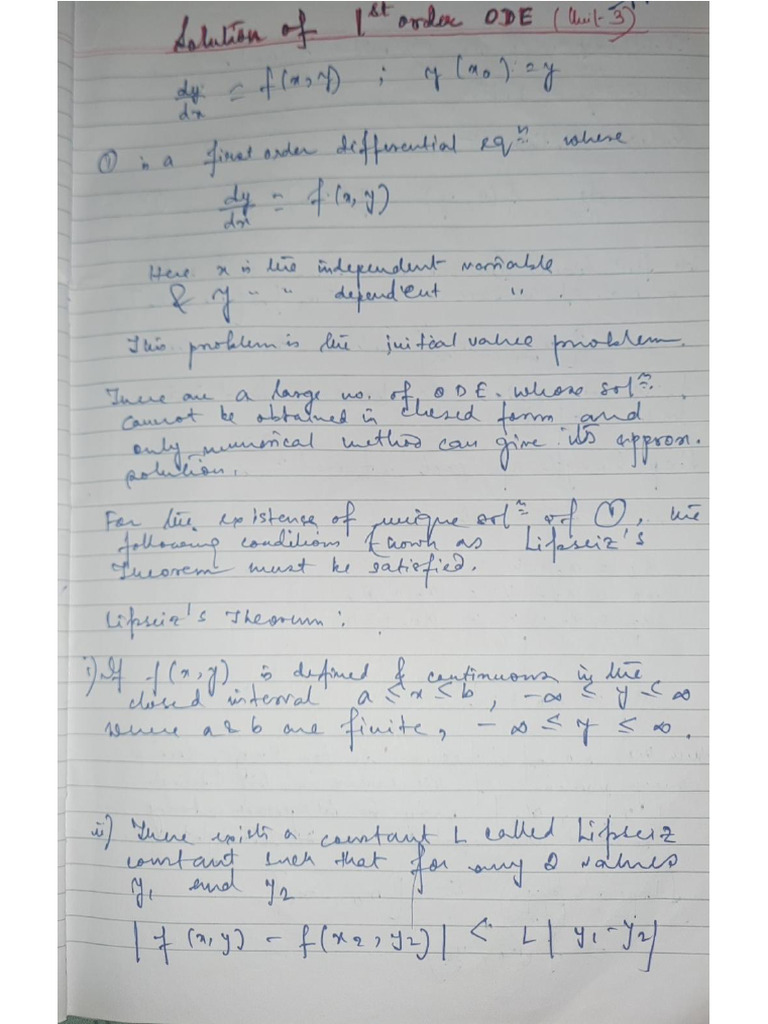 Solution of 1st order ODE (Unit-3)
dy/dx = f(x,y) ; y(x₀) = y
① is a first order differential eqⁿ where
dy/dx = f(x,y)
Here x is the independent variable
& y " " dependent " .
This problem is the initial value problem.
There are a large no. of ODE. whose solⁿ.
cannot be obtained in closed form and
only numerical method can give its approx.
solution.
For the existence of unique solⁿ of ①, the
following conditions known as Lipseiz's
Theorem must be satisfied.
Lipseiz's Theorum :
i) If f(x,y) is defined & continuous in the
closed interval a ≤ x ≤ b, -∞ ≤ y ≤ ∞
where a & b are finite, -∞ ≤ y ≤ ∞.
ii) There exists a constant L called Lipseiz
constant such that for any 2 values
y₁ and y₂
|f(x,y) - f(x₂,y₂)| < L|y₁-y₂|